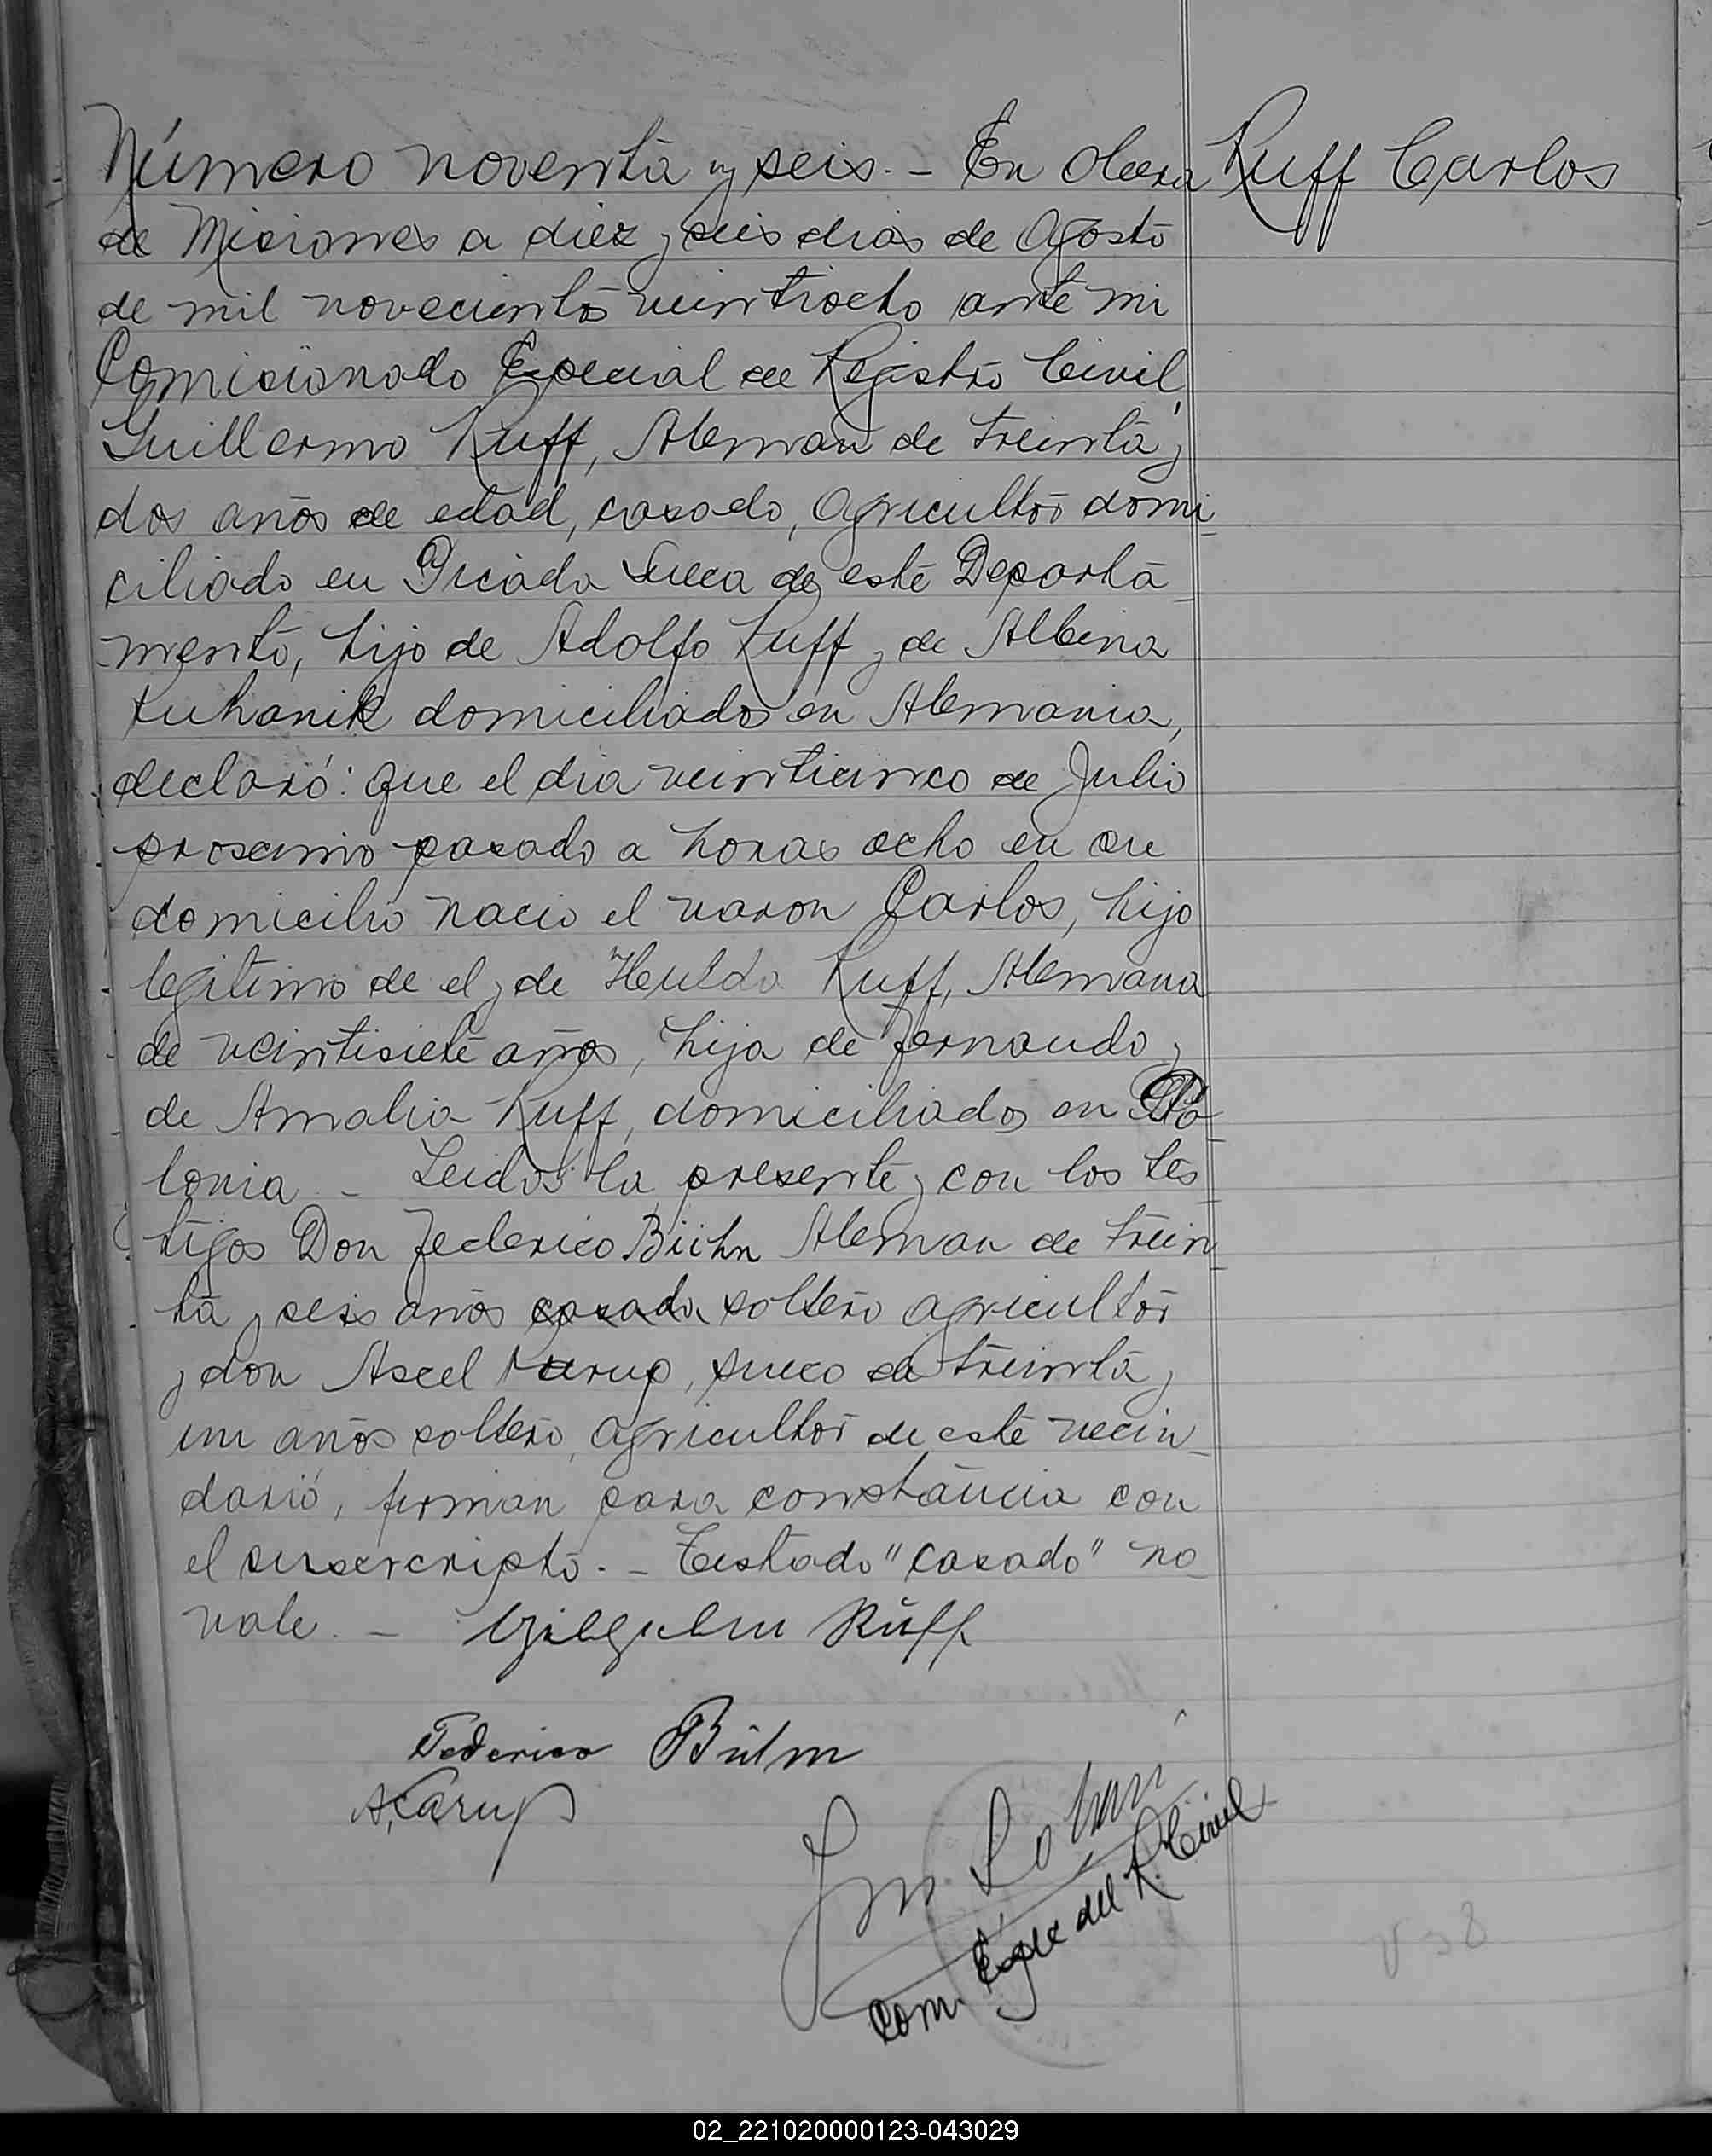 Número noventa y seis. - En Obera Ruff Carlos
de Misiones a diez y seis dias de Agosto
de mil novecientos veintiocho ante mi
Comisionado Especial de Registro Civil,
Guillermo Ruff, Aleman de treinta y
dos años de edad, casado, agricultor domi-
ciliado en Picada Sueca de este Departa-
mento, hijo de Adolfo Ruff y de Albina
Kuhanik domiciliados en Alemania,
declaró: que el dia veinticinco de Julio
prosimo pasado a horas ocho en su
domicilio nacio el varon Carlos, hijo
legitimo de el y de Hulda Ruff, Alemana
de veintisiete años, hija de Fernando y
de Amalia Ruff, domiciliados en Po-
lonia - Leidos la presente y con los tes-
tigos Don Federico Bühn Aleman de trein-
ta y seis años casado soltero agricultor
y don Axel Karup, sueco de treinta y
un años soltero, agricultor de este vecin-
dario, firman para constancia con
el suscripto. - Testado "casado" no
vale. - Wilhelm Ruff
Federico Bühn
A. Karup
Com. Espe del R. Civil
02_221020000123-043029